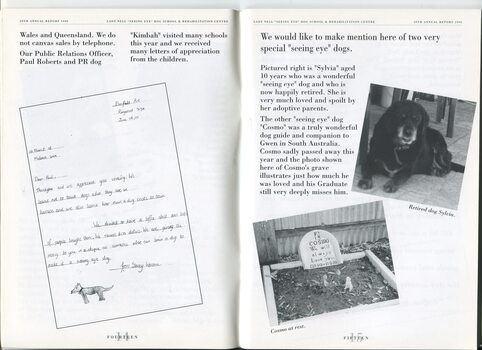 38TH ANNUAL REPORT 1998
LADY NELL "SEEING EYE" DOG SCHOOL & REHABILITATION CENTRE
Wales and Queensland. We do
not canvas sales by telephone.
Our Public Relations Officer,
Paul Roberts and PR dog
"Kimbah" visited many schools
this year and we received
many letters of appreciation
from the children.
Dear Paul,
Thankyou and we appreciate you coming. We
learnt not to touch dogs when they are in
harness and we also learnt how much a dog costs to train.
We decided to have a raffle
of people bought them. We raised
money to you
make it a seeing eye dog.
FOURTEEN
LADY NELL "SEEING EYE" DOG SCHOOL & REHABILITATION CENTRE
38TH ANNUAL REPORT 1998
We would like to make mention here of two very
special "seeing eye" dogs.
Pictured right is "Sylvia" aged
10 years who was a wonderful
"seeing eye" dog and who is
now happily retired. She is
very much loved and spoilt by
her adoptive parents.
The other "seeing eye" dog
"Cosmo" was a truly wonderful
dog guide and companion to
Gwen in South Australia.
Cosmo sadly passed away this
year and the photo shown
here of Cosmo's grave
illustrates just how much he
was loved and his Graduate
still very deeply misses him.
Retired dog Sylvia.
COSMO
We will
always
Love you
Cosmo at rest.
FIFTEEN